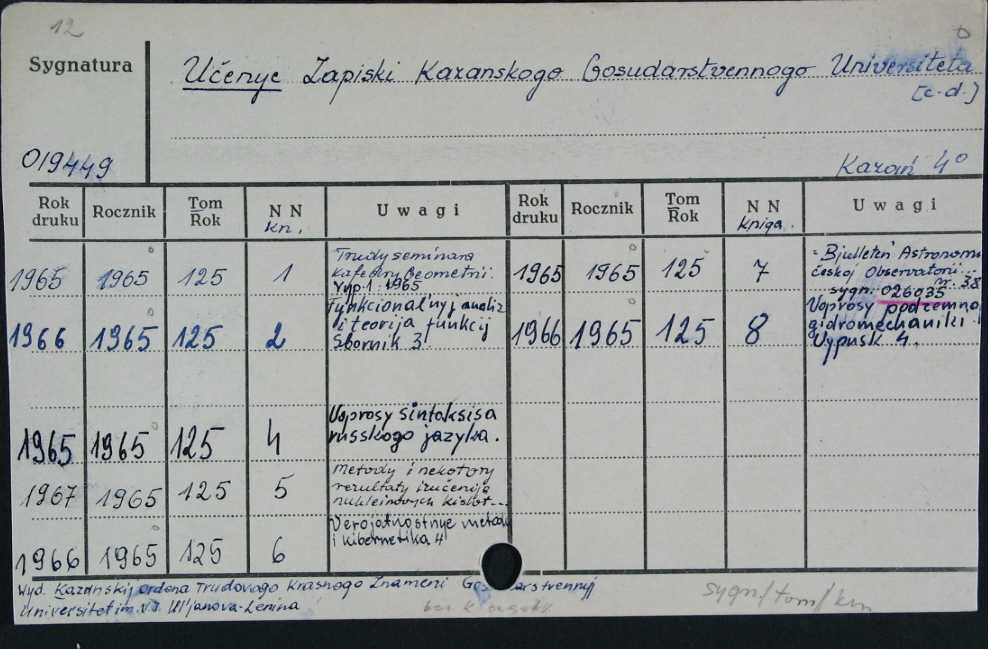 12
Sygnatura
Učenye Zapiski Kazanskogo Gosudarstvennogo Universiteta
[c.d.]
019449
Kazań 4°
Rok druku Rocznik Tom Rok N N kn. Uwagi Rok druku Rocznik Tom Rok N N kniga. Uwagi
1965 1965 125 1 Trudy seminara kafedry Geometrii. Vyp. 1. 1965 1965 1965 125 7 Bjulleteń Astronomičeskoj Observatorii... nr. 38 sygn. 026035
1966 1965 125 2 Funkcional'nyj analiz i teorija funkcij Sbornik 3 1966 1965 125 8 Voprosy podzemnoj gidromechaniki Vypusk 4.
1965 1965 125 4 Voprosy sintaksisa russkogo jazyka.
1967 1965 125 5 Metody i nekotory rezultaty izučenija nukleinovych kislot...
1966 1965 125 6 Verojatnostnye metody i kibernetika 4
Wyd. Kazanskij ordena Trudovogo Krasnogo Znameni Gosudarstvennyj
Universitet im. V.I. Ul'janova-Lenina
sygn/tom/kn